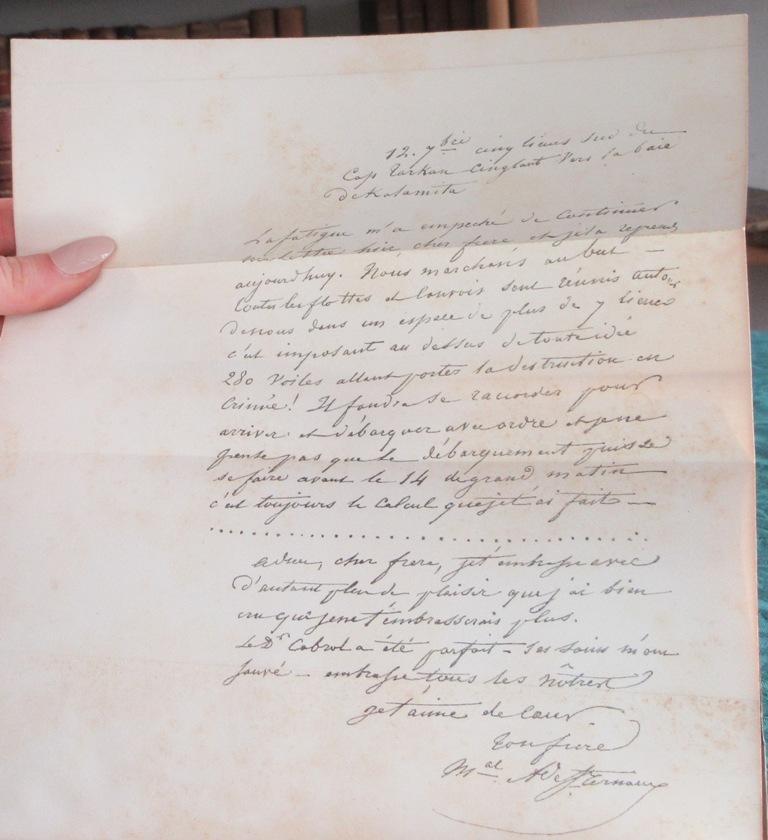 12. 7bre cinq lieues sud du
Cap Tarkan Cinglant vers la baie
de Kalamita
La fatigue m'a empeché de continuer
ma lettre hier, cher frere et je la reprends
aujourd'huy. Nous marchons au but —
toutes les flottes et convois sont réunis autour
de nous dans un espace de plus de 7 lieues
c'est imposant au dessus de toute idée
280 voiles allant porter la destruction en
Crimée! Il faudra se raccorder pour
arriver et débarquer avec ordre et je ne
pense pas que le débarquement puisse
se faire avant le 14 de grand matin
c'est toujours le calcul que j'ai fait —
adieu, cher frere, je t'embrasse avec
d'autant plus de plaisir que j'ai bien
cru que je ne t'embrasserais plus.
Le Dr Cabrol a été parfait - ses soins m'ont
sauvé - embrasse tous les nôtres
je t'aime de cœur
ton frere
Mal A de St Arnaud